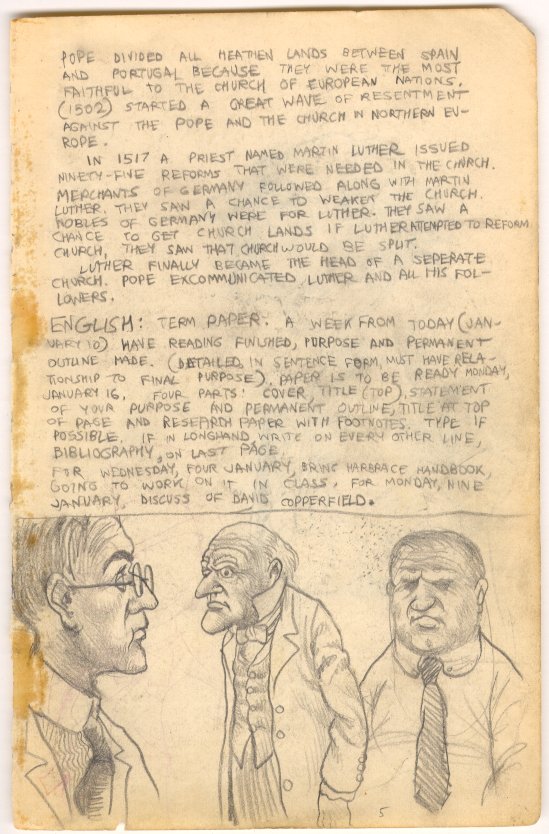 POPE DIVIDED ALL HEATHEN LANDS BETWEEN SPAIN
AND PORTUGAL BECAUSE THEY WERE THE MOST
FAITHFUL TO THE CHURCH OF EUROPEAN NATIONS,
(1502) STARTED A GREAT WAVE OF RESENTMENT
AGAINST THE POPE AND THE CHURCH IN NORTHERN EU-
ROPE.
IN 1517 A PRIEST NAMED MARTIN LUTHER ISSUED
NINETY-FIVE REFORMS THAT WERE NEEDED IN THE CHURCH.
MERCHANTS OF GERMANY FOLLOWED ALONG WITH MARTIN
LUTHER. THEY SAW A CHANCE TO WEAKEN THE CHURCH.
NOBLES OF GERMANY WERE FOR LUTHER. THEY SAW A
CHANCE TO GET CHURCH LANDS IF LUTHER ATTEMPTED TO REFORM
CHURCH, THEY SAW THAT CHURCH WOULD BE SPLIT.
LUTHER FINALLY BECAME THE HEAD OF A SEPERATE
CHURCH. POPE EXCOMMUNICATED LUTHER AND ALL HIS FOL-
LOWERS.
ENGLISH: TERM PAPER. A WEEK FROM TODAY (JAN-
UARY 10) HAVE READING FINISHED, PURPOSE AND PERMANENT
OUTLINE MADE. (DETAILED, IN SENTENCE FORM, MUST HAVE RELA-
TIONSHIP TO FINAL PURPOSE), PAPER IS TO BE READY MONDAY,
JANUARY 16, FOUR PARTS: COVER, TITLE (TOP), STATEMENT
OF YOUR PURPOSE AND PERMANENT OUTLINE, TITLE AT TOP
OF PAGE AND RESEARCH PAPER WITH FOOTNOTES. TYPE IF
POSSIBLE. IF IN LONGHAND, WRITE ON EVERY OTHER LINE,
BIBLIOGRAPHY, ON LAST PAGE.
FOR WEDNESDAY, FOUR JANUARY, BRING HARBRACE HANDBOOK,
GOING TO WORK ON IT IN CLASS. FOR MONDAY, NINE
JANUARY, DISCUSS OF DAVID COPPERFIELD.
5